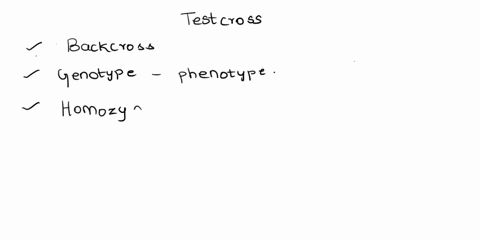 Testcross
✓ Backcross
✓ Genotype - phenotype.
✓ Homozy